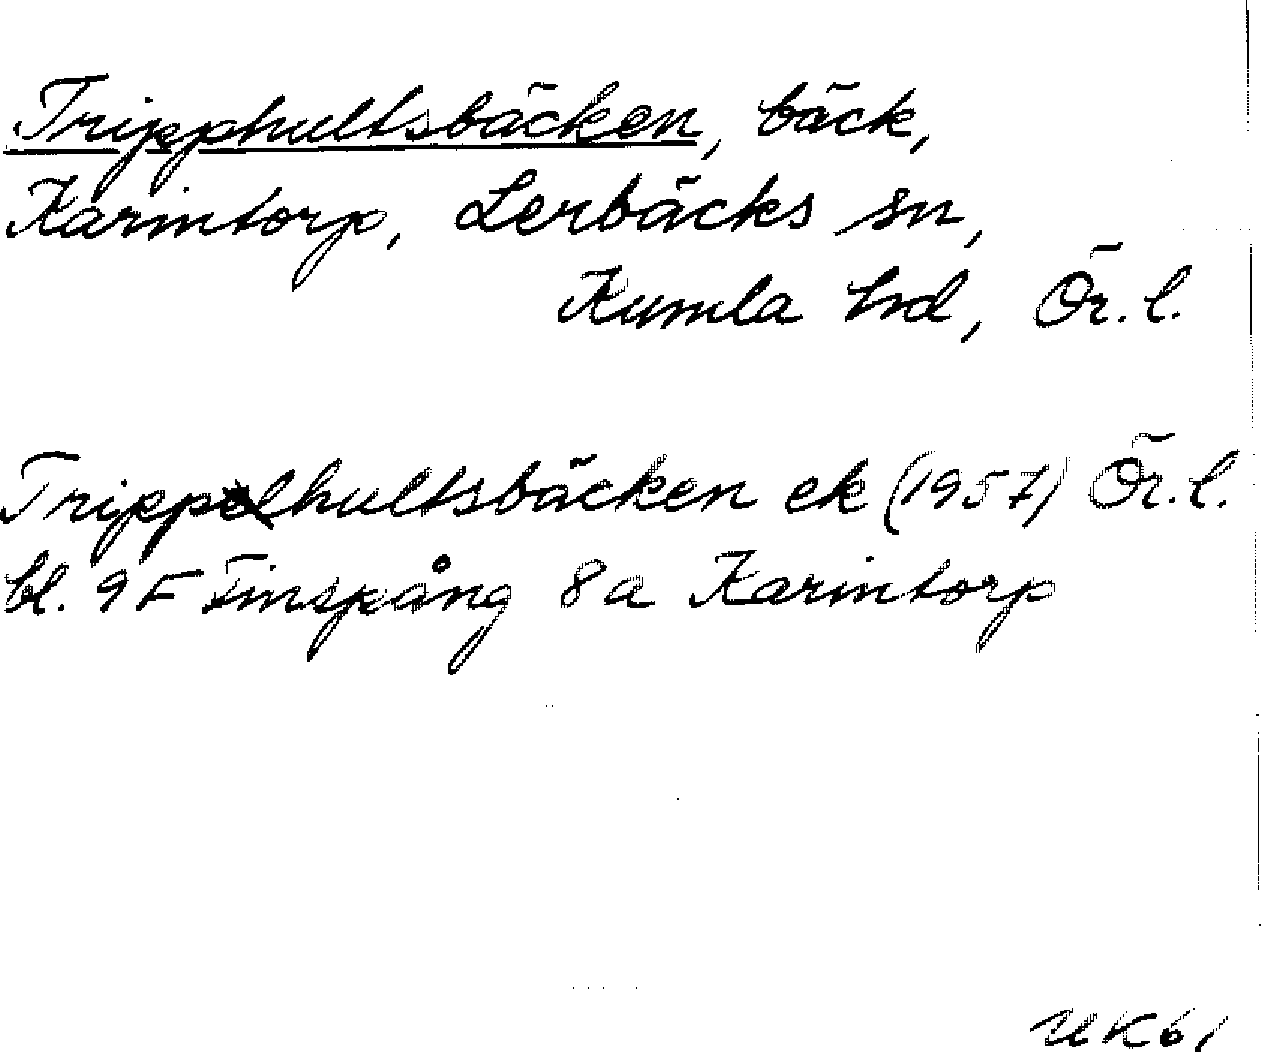 Tripphultsbäcken, bäck,
Karintorp, Lerbäcks sn,
Kumla hd, Ör. l.
Trippelhultsbäcken ek (1957) Ör. l.
bl. 9F Finspång 8a Karintorp
UK61